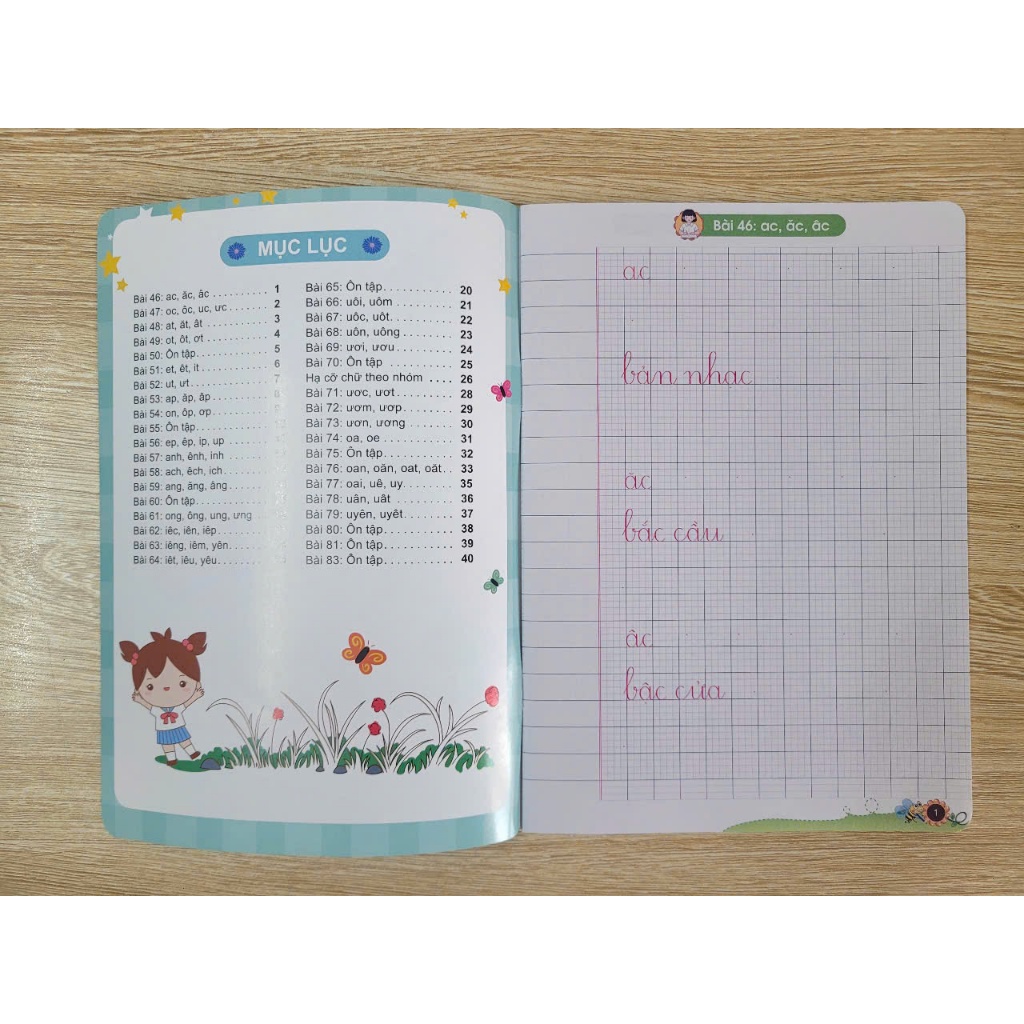 MỤC LỤC
Bài 46: ac, ăc, âc . . . . . . . . . . 1
Bài 47: oc, ôc, uc, ưc . . . . . . . 2
Bài 48: at, ăt, ât . . . . . . . . . . . 3
Bài 49: ot, ôt, ơt . . . . . . . . . . . 4
Bài 50: Ôn tập. . . . . . . . . . . . . 5
Bài 51: et, êt, it . . . . . . . . . . . . 6
Bài 52: ut, ưt . . . . . . . . . . . . . . 7
Bài 53: ap, ăp, âp . . . . . . . . . .
Bài 54: on, ôp, ơp. . . . . . . . . .
Bài 55: Ôn tập. . . . . . . . . . . . .
Bài 56: ep, êp, ip, up . . . . . . .
Bài 57: anh, ênh, inh . . . . . . .
Bài 58: ach, êch, ich. . . . . . . .
Bài 59: ang, ăng, âng . . . . . . .
Bài 60: Ôn tập. . . . . . . . . . . . .
Bài 61: ong, ông, ung, ưng
Bài 62: iêc, iên, iêp . . . . . . . .
Bài 63: iêng, iêm, yên. . . . . . .
Bài 64: iêt, iêu, yêu. . . . . . . . .
Bài 65: Ôn tập. . . . . . . . . . . . 20
Bài 66: uôi, uôm . . . . . . . . . . 21
Bài 67: uôc, uôt. . . . . . . . . . . 22
Bài 68: uôn, uông . . . . . . . . . 23
Bài 69: ươi, ươu . . . . . . . . . . 24
Bài 70: Ôn tập . . . . . . . . . . . 25
Hạ cỡ chữ theo nhóm . . . . 26
Bài 71: ươc, ươt. . . . . . . . . . 28
Bài 72: ươm, ươp. . . . . . . . . 29
Bài 73: ươn, ương . . . . . . . . 30
Bài 74: oa, oe . . . . . . . . . . . . 31
Bài 75: Ôn tập. . . . . . . . . . . . 32
Bài 76: oan, oăn, oat, oăt. . 33
Bài 77: oai, uê, uy. . . . . . . . . 35
Bài 78: uân, uât . . . . . . . . . . 36
Bài 79: uyên, uyêt. . . . . . . . . 37
Bài 80: Ôn tập. . . . . . . . . . . . 38
Bài 81: Ôn tập. . . . . . . . . . . . 39
Bài 83: Ôn tập. . . . . . . . . . . . 40
Bài 46: ac, ăc, âc
ac
bản nhạc
ăc
bắc cầu
âc
bậc cửa
1